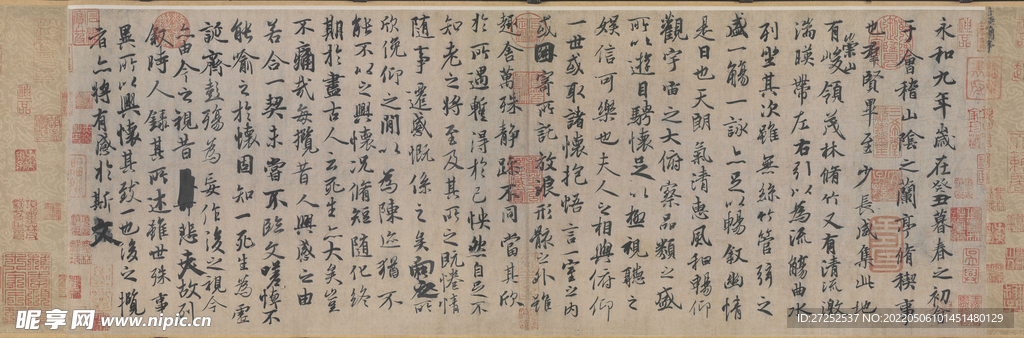 永和九年歲在癸丑暮春之初會
于會稽山陰之蘭亭脩稧事
也羣賢畢至少長咸集此地
有崇山峻領茂林脩竹又有清流激
湍暎帶左右引以為流觴曲水
列坐其次雖無絲竹管弦之
盛一觴一詠亦足以暢敘幽情
是日也天朗氣清惠風和暢仰
觀宇宙之大俯察品類之盛
所以遊目騁懷足以極視聽之
娛信可樂也夫人之相與俯仰
一世或取諸懷抱悟言一室之內
或因寄所託放浪形骸之外雖
趣舍萬殊靜躁不同當其欣
於所遇暫得於己怏然自足不
知老之將至及其所之既惓情
隨事遷感慨係之矣向之所
欣俛仰之間以為陳迹猶不
能不以之興懷況脩短隨化終
期於盡古人云死生亦大矣豈
不痛哉每攬昔人興感之由
若合一契未嘗不臨文嗟悼不
能喻之於懷固知一死生為虛
誕齊彭殤為妄作後之視今
亦由今之視昔悲夫故列
敘時人錄其所述雖世殊事
異所以興懷其致一也後之攬
者亦將有感於斯文
昵享网 www.nipic.cn
ID:27252537 NO:20220506101451480129